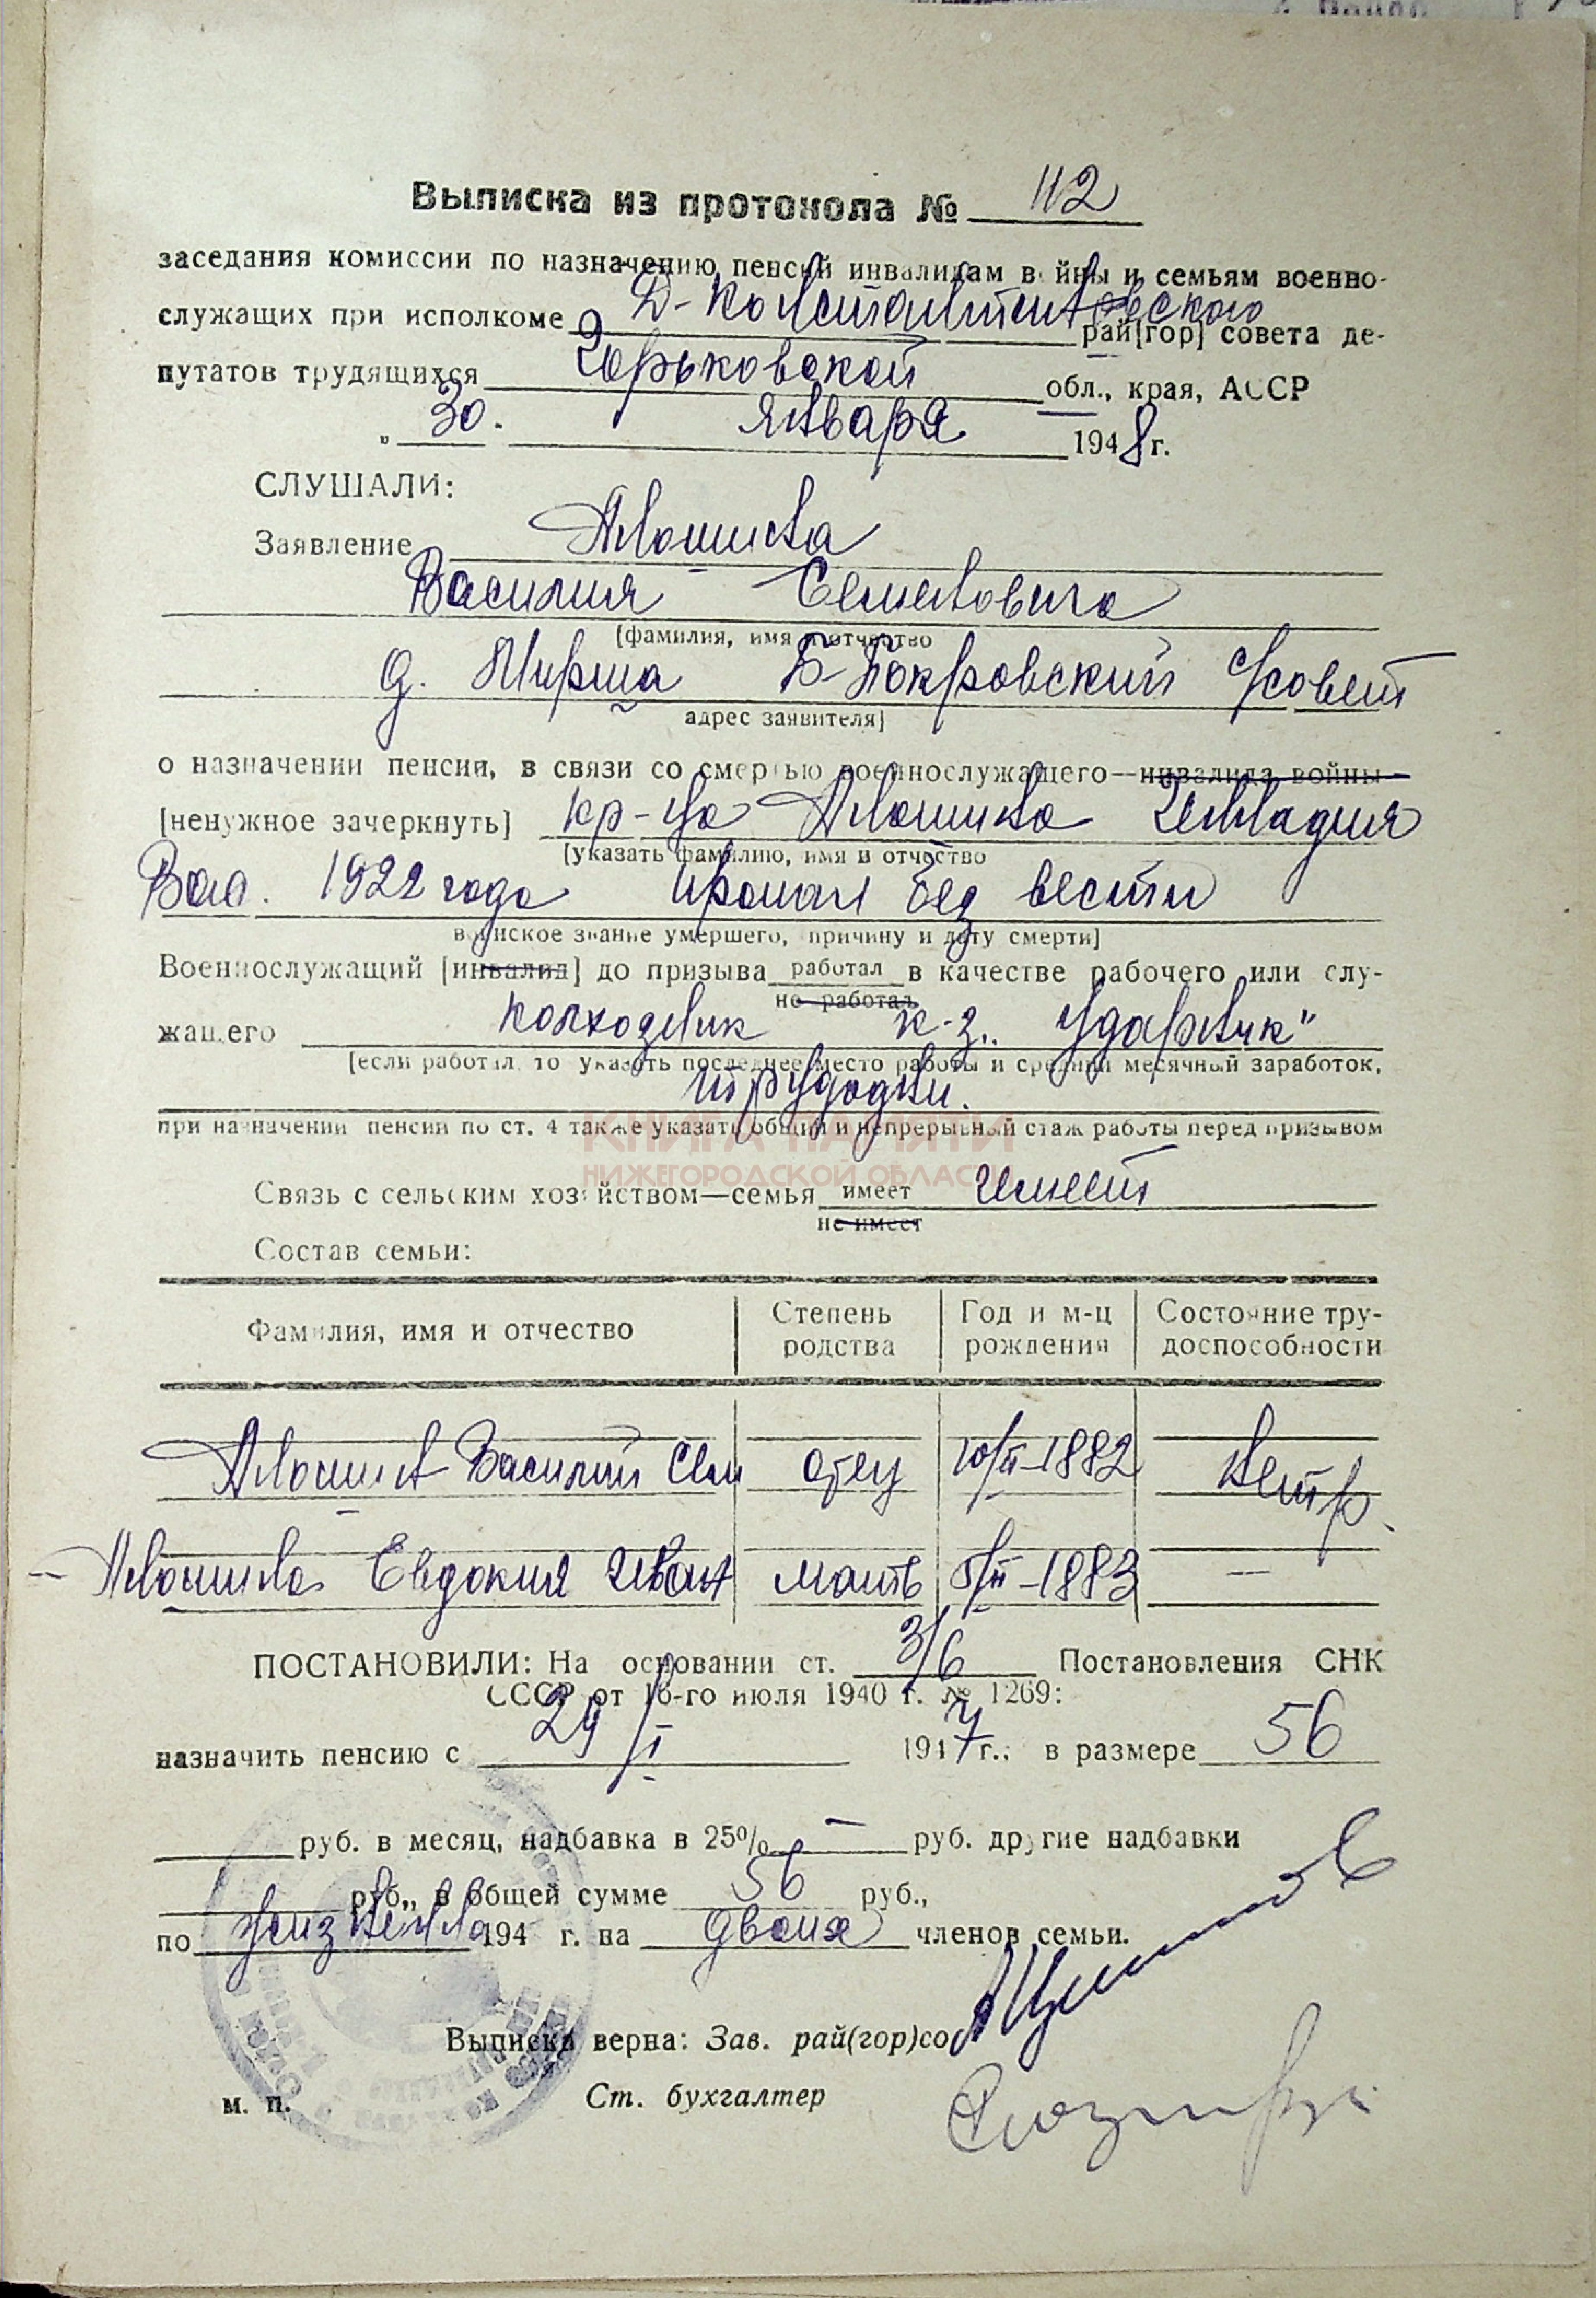 Выписка из протокола № 112
заседания комиссии по назначению пенсий инвалидам войны и семьям военно-
служащих при исполкоме Д-Константиновского рай[гор] совета де-
путатов трудящихся Горьковской обл., края, АССР
„ 30. января 1948 г.
СЛУШАЛИ:
Заявление Аношина
Василия Семеновича
[фамилия, имя и отчество
д. Мирша Б-Покровский с/совет
адрес заявителя]
о назначении пенсии, в связи со смертью военнослужащего—инвалида войны—
[ненужное зачеркнуть] кр-ца Аношина Геннадия
[указать фамилию, имя и отчество
Вас. 1922 года пропал без вести
воинское звание умершего, причину и дату смерти]
Военнослужащий [инвалид] до призыва работал в качестве рабочего или слу-
не работал
жащего колхозник к-з „Ударник"
[если работал, то указать последнее место работы и средний месячный заработок,
трудодни.
при назначении пенсии по ст. 4 также указать общий и непрерывный стаж работы перед призывом
КНИГА ПАМЯТИ
НИЖЕГОРОДСКОЙ ОБЛАСТИ
Связь с сельским хозяйством—семья имеет имеет
не имеет
Состав семьи:
Фамилия, имя и отчество Степень родства Год и м-ц рождения Состояние тру-доспособности
Аношин Василий Сем отец 10/II-1882 нетр.
Аношина Евдокия Иван мать 5/II-1883 —
ПОСТАНОВИЛИ: На основании ст. 3/6 Постановления СНК
СССР от 16-го июля 1940 г. № 1269:
назначить пенсию с 29/I 1947 г.; в размере 56
руб. в месяц, надбавка в 25% — руб. другие надбавки
руб., в общей сумме 56 руб.,
по 194 г. на двоих членов семьи.
Выписка верна: Зав. рай(гор)со
м. п. Ст. бухгалтер